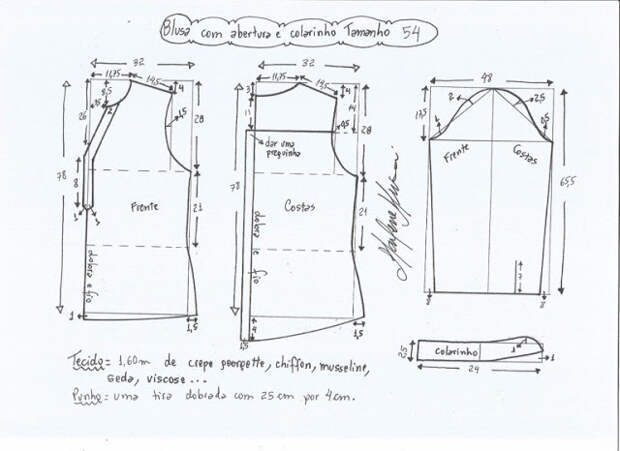 Blusa com abertura e colarinho Tamanho 54
32
11,75
14,5
4
8,5
26
1,5
28
78
8
Frente
23
dobra e fio
1
1,5
32
11,75
14,5
3
4
11
14
4,5
28
dar uma preguinha
78
Costas
21
dobra e fio
4
1,5
1,5
48
17,5
2
2,5
Frente
Costas
65,5
7
2
2
colarinho
1
1
24
Tecido = 1,60m de crepe georgette, chiffon, musseline,
seda, viscose ...
Punho = uma tira dobrada com 25cm por 4cm.